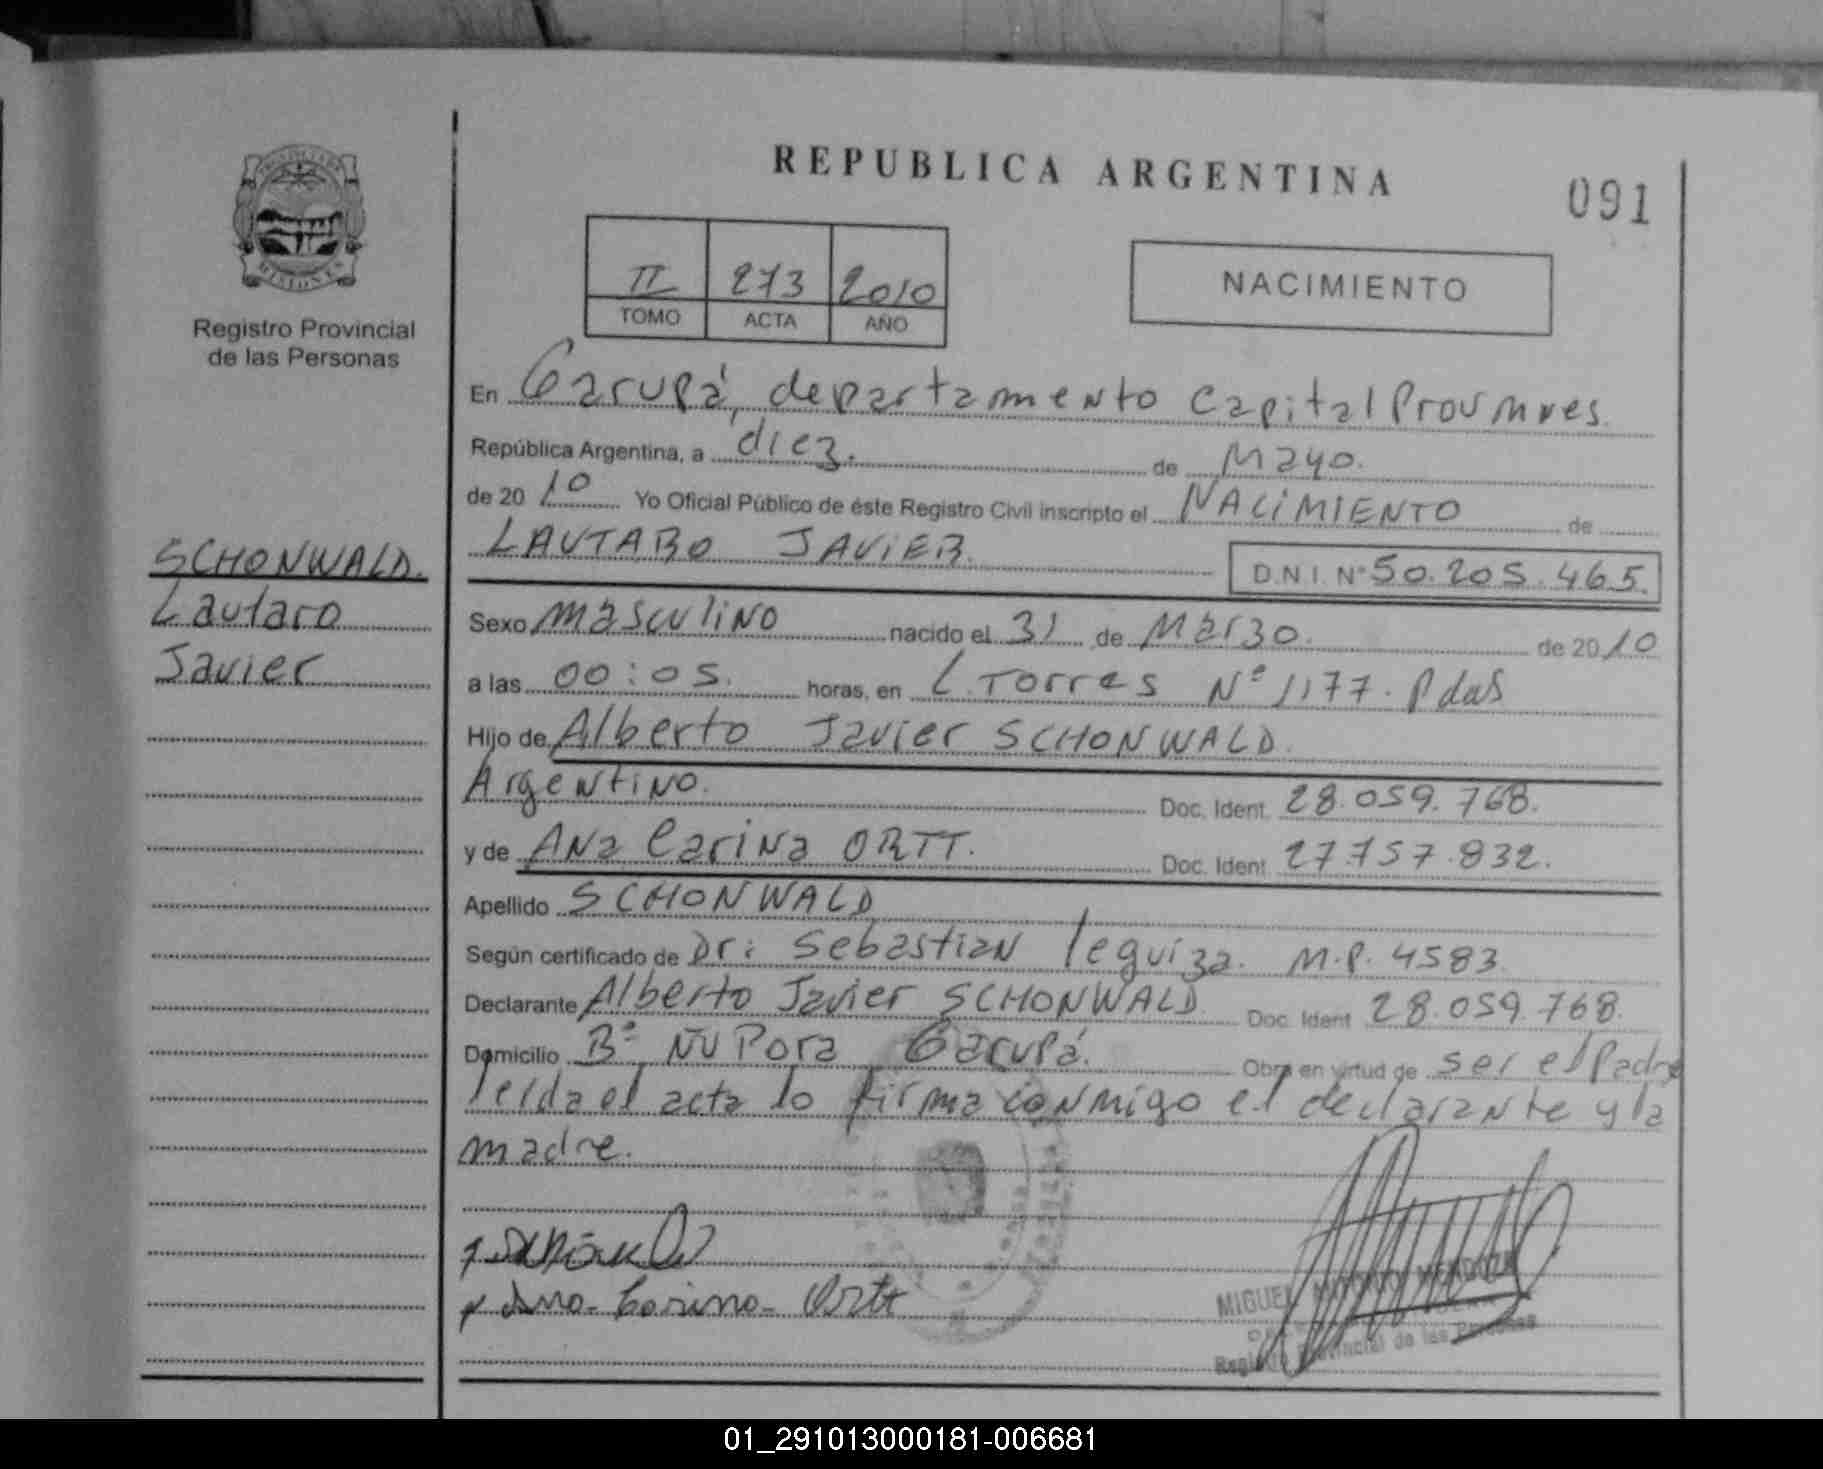 REPUBLICA ARGENTINA
091
PROVINCIA DE
MISIONES
Registro Provincial
de las Personas
II 273 2010
TOMO ACTA AÑO
NACIMIENTO
En Garupá, departamento Capital Prov Mnes.
República Argentina, a diez. de Mayo.
de 20 10 Yo Oficial Público de éste Registro Civil inscripto el NACIMIENTO de
LAUTARO JAVIER. D.N.I. N° 50.205.465.
SCHONWALD.
Lautaro
Javier
Sexo masculino nacido el 31 de Marzo. de 20 10
a las 00:05. horas, en L. Torres N° 1177. Pdas
Hijo de Alberto Javier SCHONWALD.
Argentino. Doc. Ident. 28.059.768.
y de Ana Carina ORTT. Doc. Ident. 27.757.832.
Apellido SCHONWALD
Según certificado de Dr: Sebastian leguiza. M.P. 4583.
Declarante Alberto Javier SCHONWALD. Doc. Ident 28.059.768.
Domicilio B° ÑU Pora Garupá. Obra en virtud de ser el Padre
leída el acta lo firma conmigo el declarante y la
madre.
Ana Carina Ortt
MIGUEL MENDOZA
Registro Provincial de las Personas
01_291013000181-006681